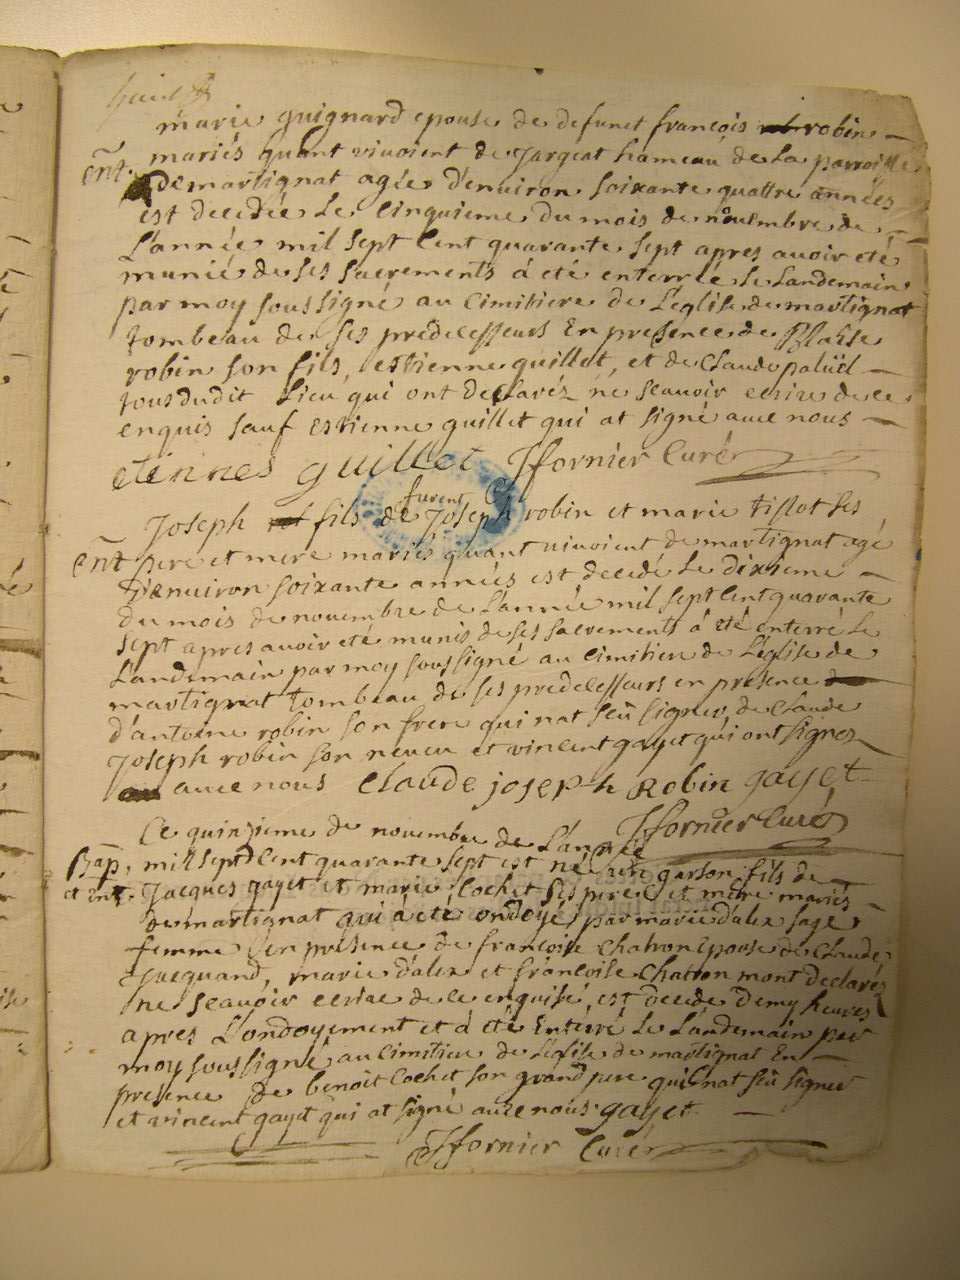 huit
marie guignard epouse de defunct françois robin
mariés quant vivoient de jargeat hameau de la parroisse
ent. de martignat agée d'environ soixante quattre années
est decedée le cinquieme du mois de novembre de
L'année mil sept cent quarante sept apres avoir eté
munie de ses sacrements á eté enterrée le Landemain
par moy soussigné au cimitiere de L'eglise de martignat
tombeau de ses predecesseurs En presence de Blaise
robin son fils, estienne guillet, et de Claude paliid
tous dudit Lieu qui ont declaréz ne scavoir ecrire de ce
enquis sauf estienne guillet qui at signé avec nous
etiennes guillet Jfornier Curé
furent
Joseph fils de Joseph robin et marie tissot ses
ent pere et mere mariés quant vivoient de martignat agé
D'environ soixante années est decedé Le dixieme
du mois de novembre de L'année mil sept cent quarante
sept apres avoir eté munis de ses sacrements á eté enterré Le
Landemain par moy soussigné au cimitiere de L'eglise de
martignat tombeau de ses predecesseurs en presence
d'antoine robin son frere qui nat sçû signer, de claude
joseph robin son neveu et vincent gayet qui ont signez
avec nous Claude joseph Robin gayet
Jfornier Curé
Ce quinzieme de novembre de L'année
Bap. mil sept cent quarante sept est né un garson fils de
et ent. Jacques gayet et marie Cochet ses pere et mere mariés
de martignat qui á eté ondoyé par marie dalex sage
femme en presence de françoise Chatron Epouse de Claude
Jacquand, marie d'alex et françoise Chatron mont declaréz
ne scavoir ecrire de ce enquise, est decedé Demy heures
apres L'ondoyement et á eté Enterré Le Landemain par
moy soussigné au cimitiere de L'eglise de martignat En
presence de benoit Cochet son grand pere qui nat sçû signer
et vincent gayet qui at signé avec nous gayet
Jfornier Curé